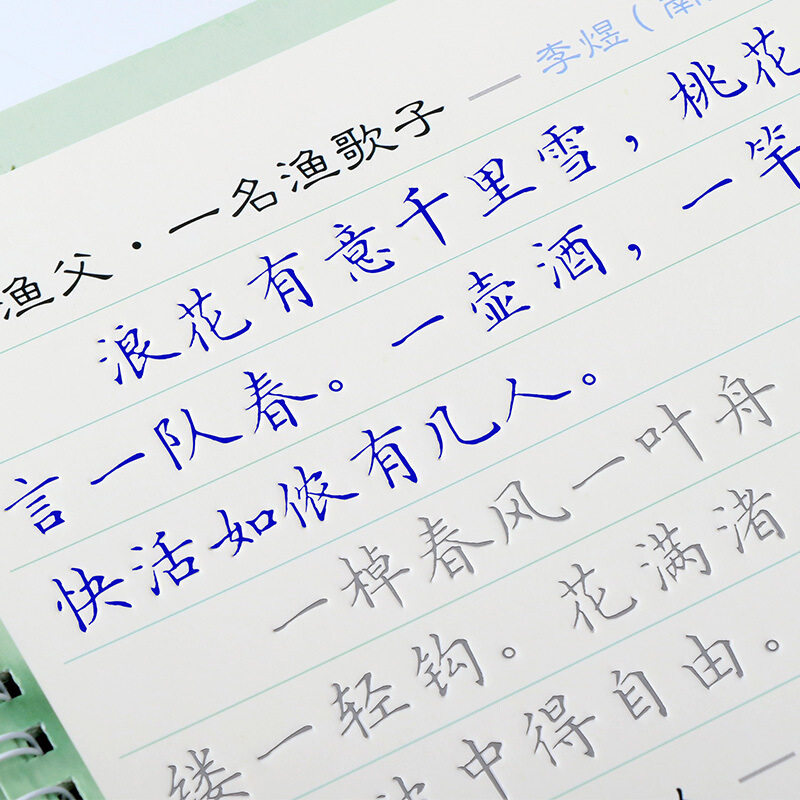 渔父·一名渔歌子 — 李煜（南
浪花有意千里雪，桃花
言一队春。一壶酒，一竿
快活如侬有几人。
一棹春风一叶舟
缕一轻钩。花满渚
波中得自由。